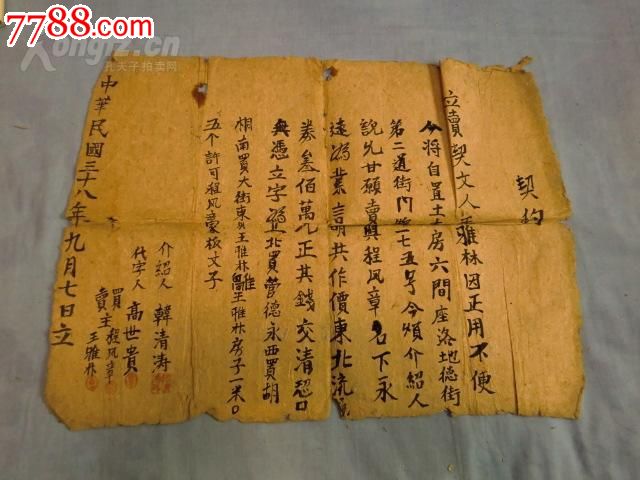 7788.com
Kongfz.cn
孔夫子拍卖网
契约
立賣契文人王雅林因正用不便
今将自置土房六間座洛地德街
第二道街門牌七五号今煩介紹人
説允甘願賣與程凤章名下永
遠為業言明共作價東北流
券叁佰萬元正其錢交清恐口
無憑立字為 北買营德永西買胡
桐南買大街東 王雅林 王雅林房子一米
五个許可程凤章板丈子
介紹人 韓清涛
代字人 高世贵
買主 程凤章
賣主 王雅林
中華民國三十八年九月七日立